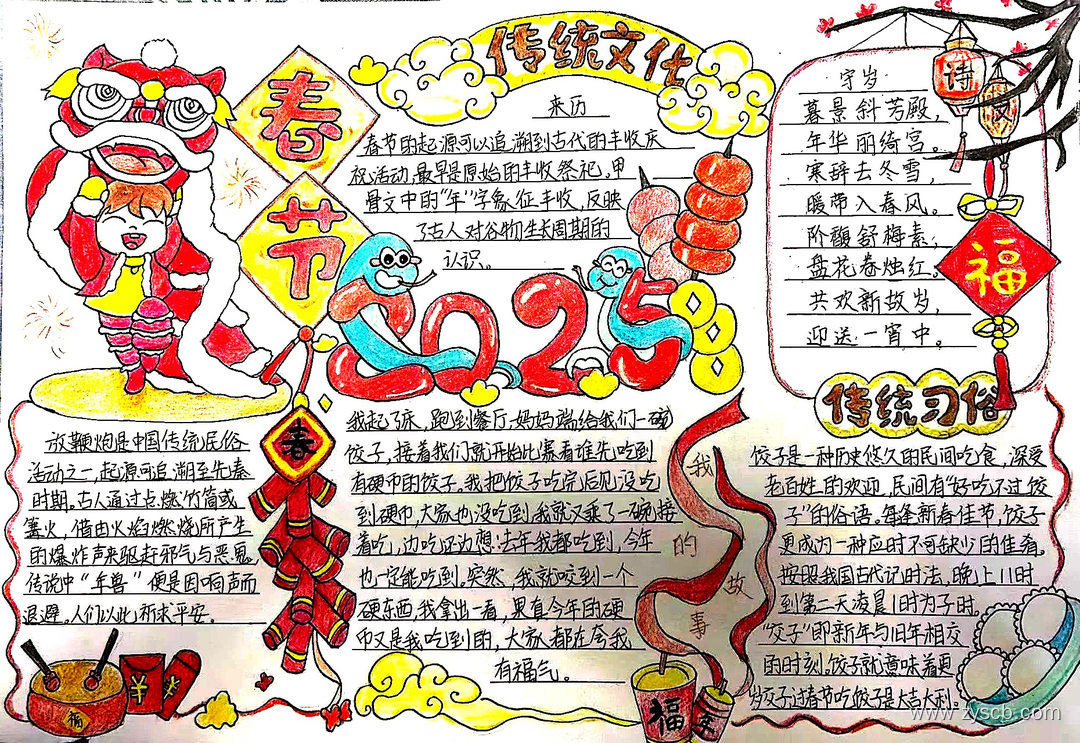 传统文化
春
节
来历
春节的起源可以追溯到古代的丰收庆
祝活动,最早是原始的丰收祭祀,甲
骨文中的“年”字象征丰收,反映
了古人对谷物生长周期的
认识。
2025
诗
守岁
暮景斜芳殿,
年华丽绮宫。
寒辞去冬雪,
暖带入春风。
阶馥舒梅素,
盘花卷烛红。
共欢新故岁,
迎送一宵中。
福
放鞭炮是中国传统民俗
活动之一,起源可追溯至先秦
时期。古人通过点燃竹筒或
篝火,借由火焰燃烧所产生
的爆炸声来驱赶邪气与恶鬼
传说中“年兽”便是因响声而
退避。人们以此祈求平安。
福
¥
春
我起了床,跑到餐厅,妈妈端给我们一碗
饺子,接着我们就开始比赛看谁先吃到
有硬币的饺子。我把饺子吃完后见没吃
到硬币,大家也没吃到,我就又乘了一碗,接
着吃,边吃还边想:去年我都吃到,今年
也一定能吃到,突然,我就咬到一个
硬东西,我拿出一看,果真今年的硬
币又是我吃到的,大家都在夸我
有福气。
我的故事
福
传统习俗
饺子是一种历史悠久的民间吃食,深受
老百姓的欢迎,民间有“好吃不过饺
子”的俗语。每逢新春佳节,饺子
更成为一种应时不可缺少的佳肴。
按照我国古代记时法,晚上11时
到第二天凌晨1时为子时。
“交子”即新年与旧年相交
的时刻。饺子就意味着更
岁交子过春节吃饺子是大吉大利。
www.zyscb.com